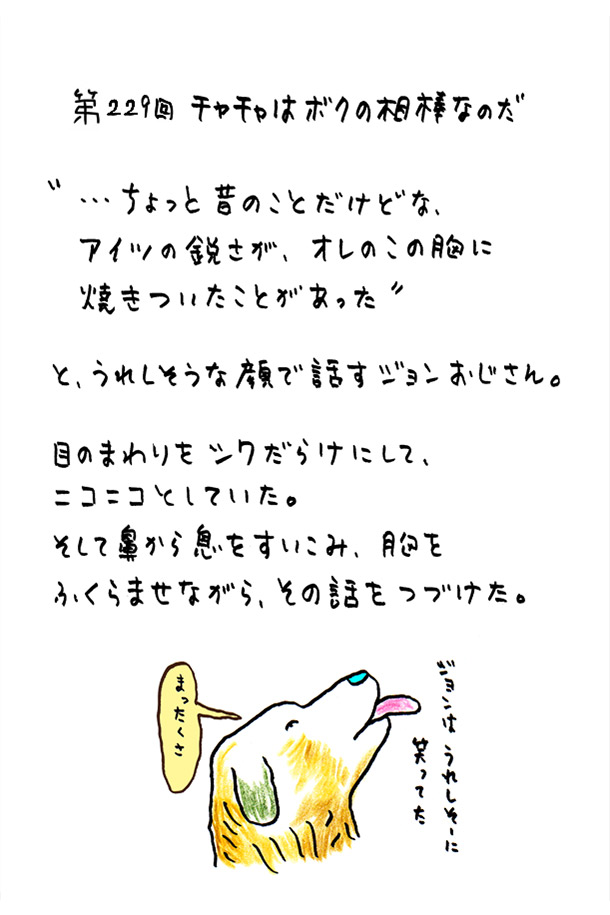 第229回 チャチャはボクの相棒なのだ
〝…ちょっと昔のことだけどな、
アイツの鋭さが、オレのこの胸に
焼きついたことがあった〞
と、うれしそうな顔で話すジョンおじさん。
目のまわりをシワだらけにして、
ニコニコとしていた。
そして鼻から息をすいこみ、胸を
ふくらませながら、その話をつづけた。
まったくさ
ジョンは うれしそーに
笑ってた